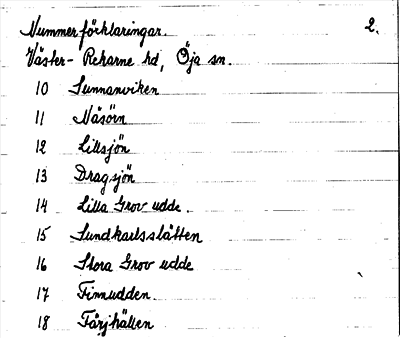 Nummerförklaringar. 2.
Väster-Rekarne hd, Öja sn.
10 Sunnanviken
11 Näsörn
12 Lillsjön
13 Dragsjön
14 Lilla Grov udde.
15 Sundkarlsslätten
16 Stora Grov udde
17 Finnudden.
18 Färjhällen